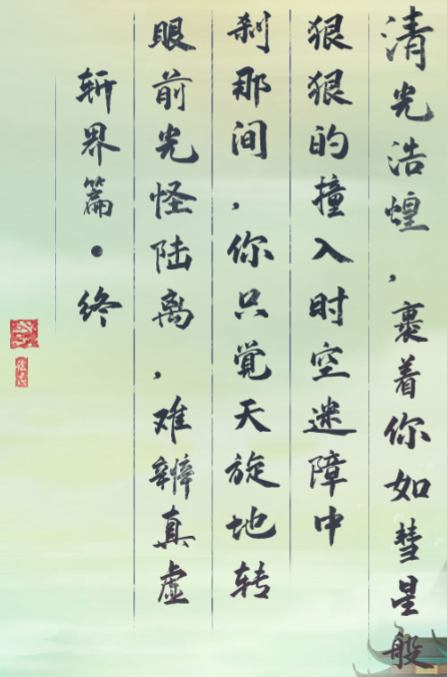 清光浩煌，裹着你如彗星般
狠狠的撞入时空迷障中
刹那间，你只觉天旋地转
眼前光怪陆离，难辨真虚
斩界篇·终